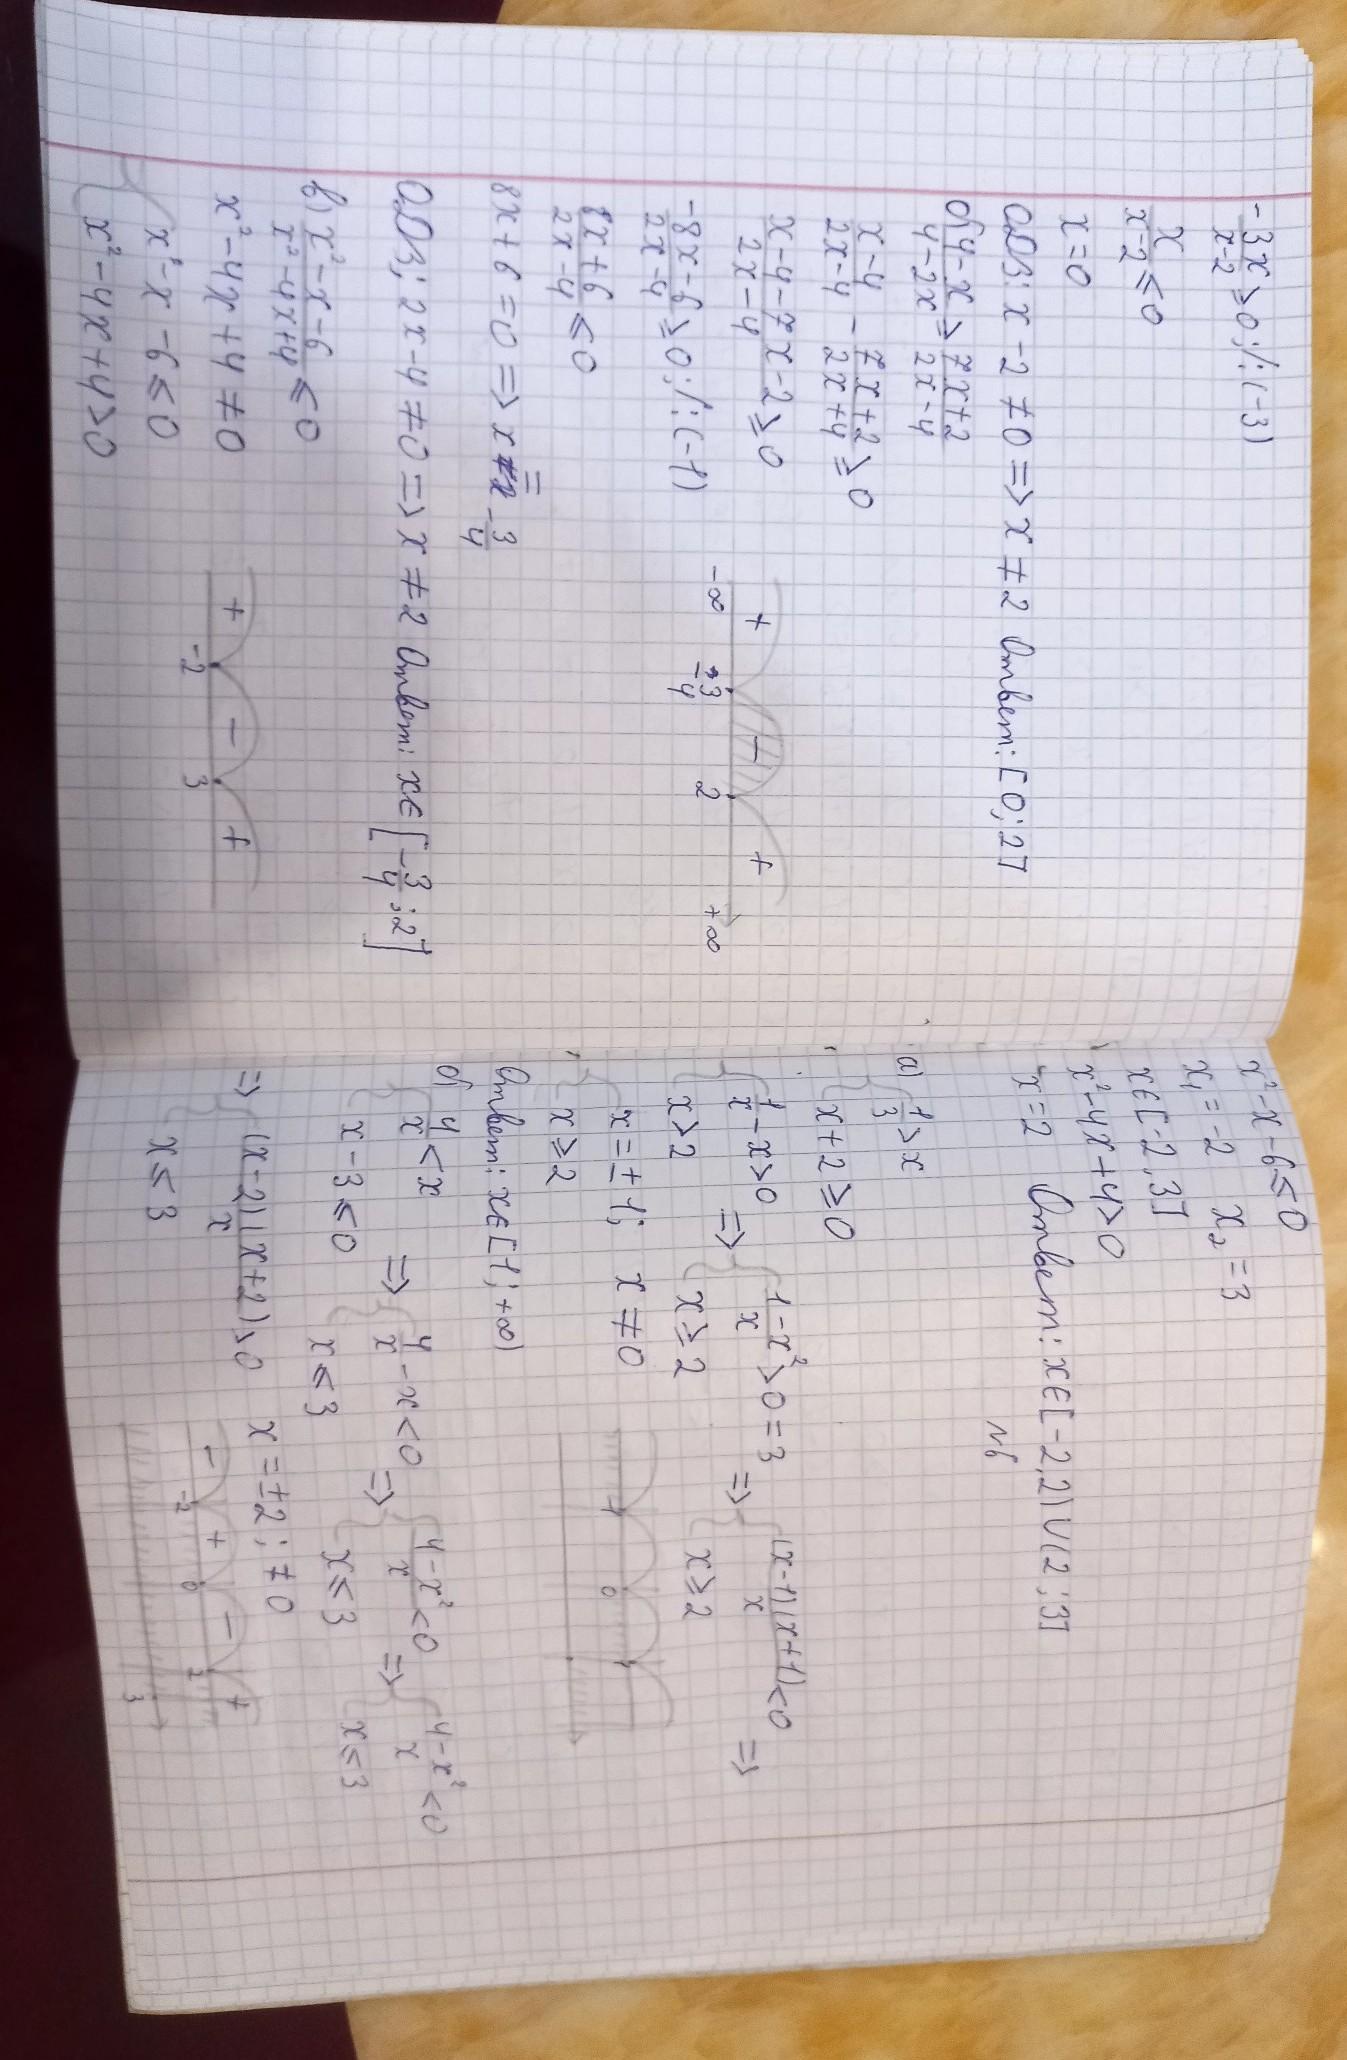 -3x/x-2 ≥ 0; /:(-3)
x/x-2 ≤ 0
x=0
ОДЗ: x-2≠0 => x≠2 Ответ: [0; 2]
б) 4-x/4-2x ≥ 7x+2/2x-4
x-4/2x-4 - 7x+2/2x+4 ≥ 0
x-4-7x-2/2x-4 ≥ 0
-8x-6/2x-4 ≥ 0; /:(-1)
+ - +
-∞ -3/4 2 +∞
8x+6/2x-4 ≤ 0
8x+6=0 => x = -3/4
ОДЗ; 2x-4≠0 => x≠2 Ответ: x∈[-3/4; 2]
в) x²-x-6/x²-4x+4 ≤ 0
x²-4x+4≠0
+ - +
-2 3
{ x²-x-6≤0
{ x²-4x+4>0
x²-x-6≤0
x₁=-2 x₂=3
x∈[-2, 3]
x²-4x+4>0
x=2 Ответ: x∈[-2, 2) U (2; 3]
№6
а) { 1/3 > x
{ x+2≥0
{ 1/x - x>0 => { 1-x²/x >0=3 => { (x-1)(x+1)/x <0 =>
{ x>2 { x≥2 { x≥2
{ x=±1; x≠0
{ x≥2
-1 0 1
Ответ: x∈[1; +∞)
б) { 4/x < x => { 4/x - x<0 => { 4-x²/x <0 => { 4-x²/x <0
{ x-3≤0 { x≤3 { x≤3 { x≤3
=> { (x-2)(x+2)/x >0 x=±2; ≠0
{ x≤3
- + - +
-2 0 2
3